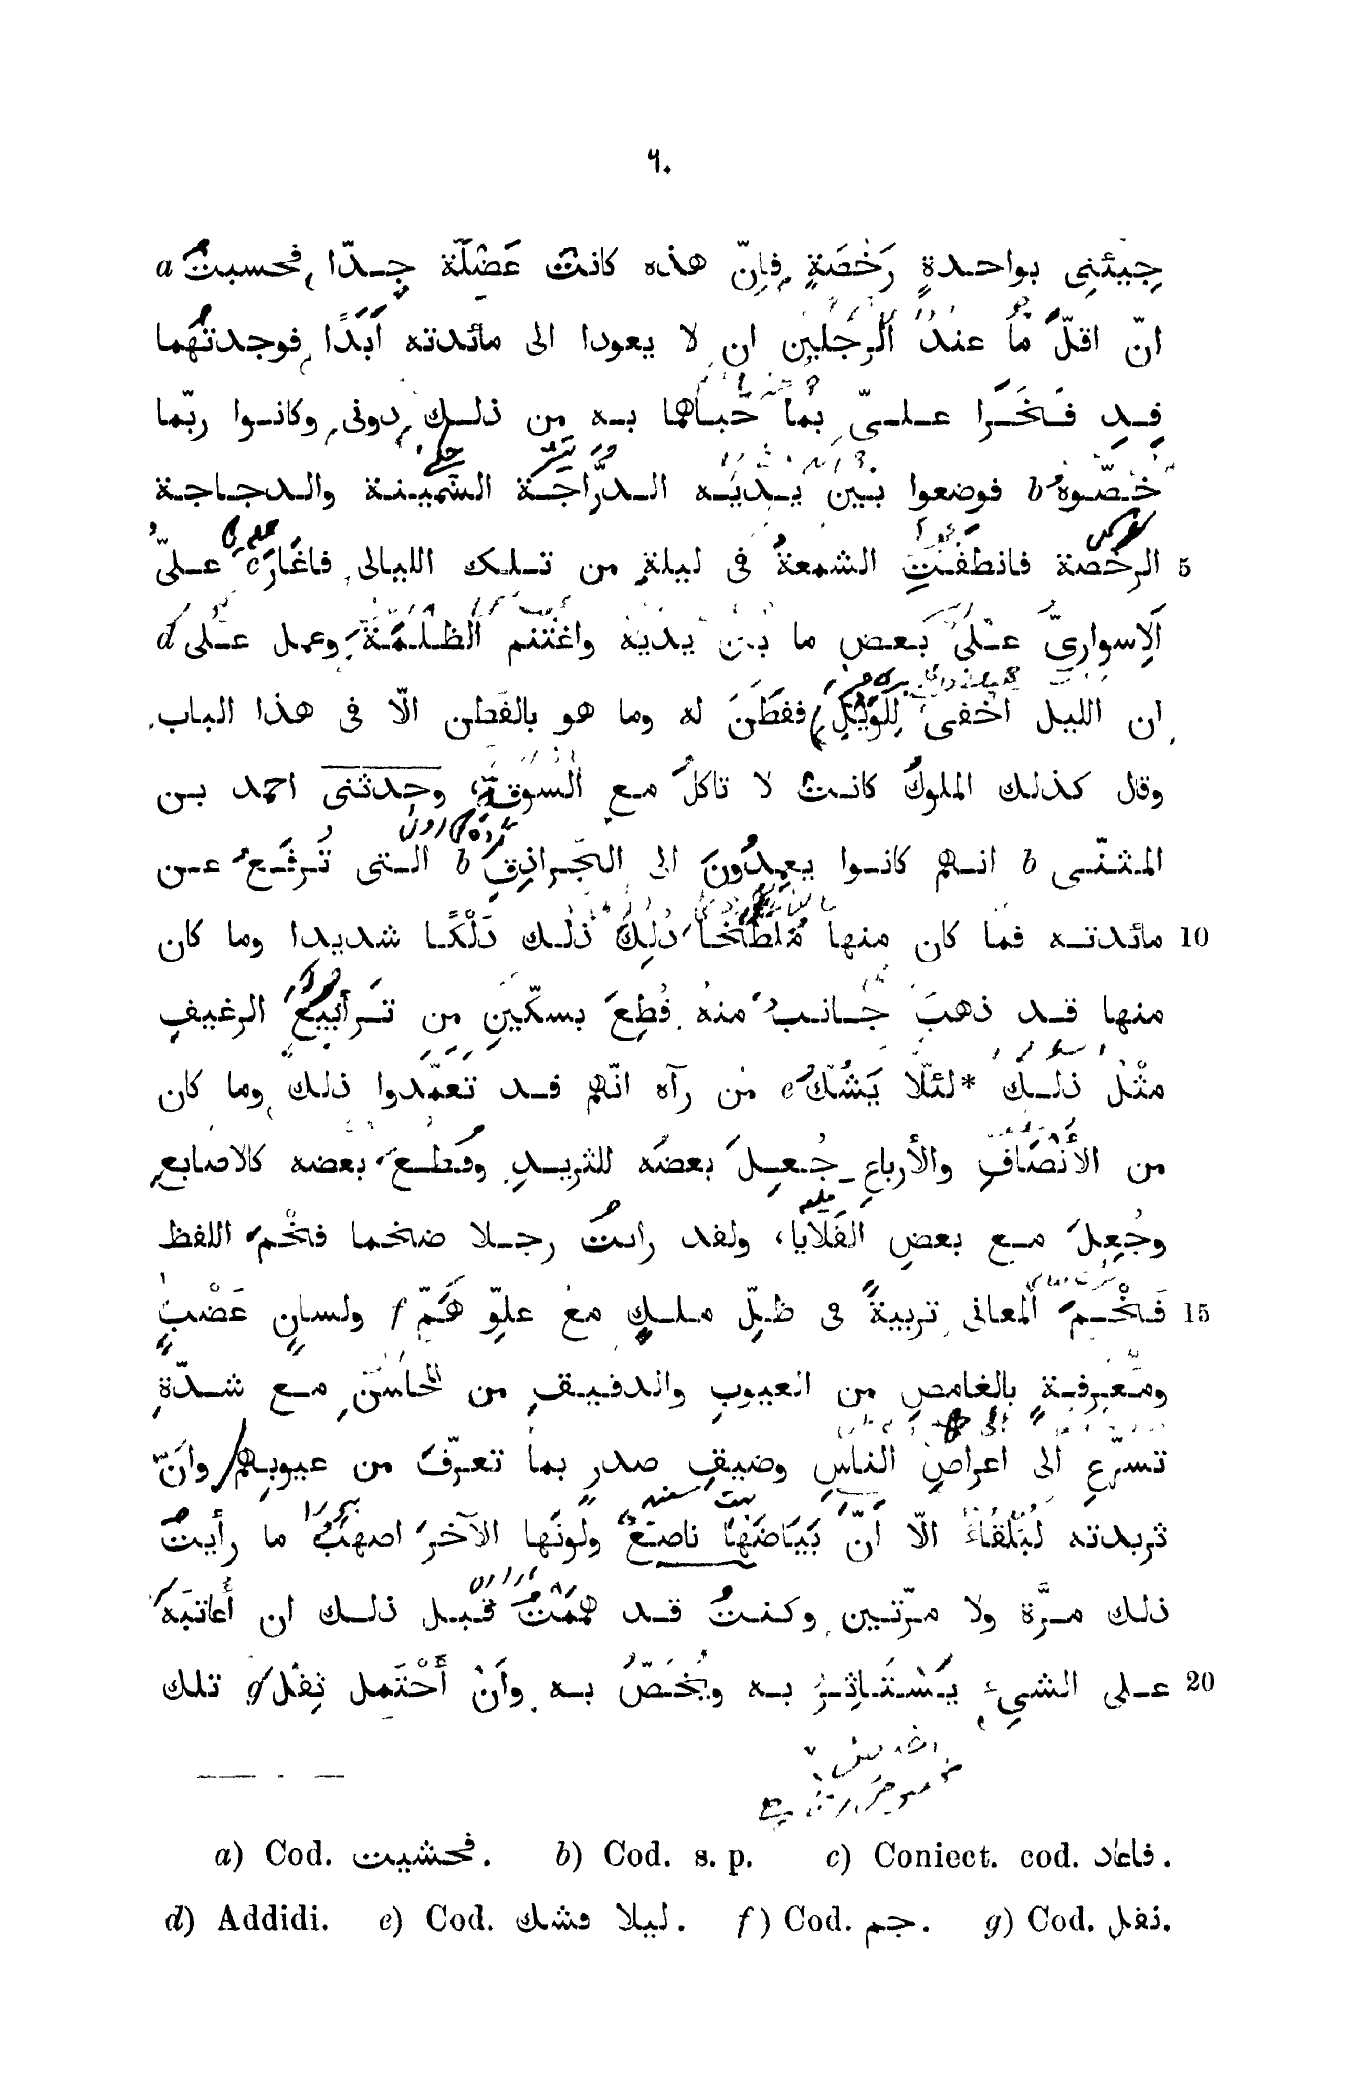 ٦٠
جيئنى بواحدةٍ رَخْصَةٍ فإنّ هذه كانت عَضِلَة جِدّا فحسبتُ a
انّ اقلّ ما عند الرجلين ان لا يعودا الى مائدته أبَدًا فوجدتُهما
قد فَخَرَا علىّ بما حَباهما به من ذلك دونى وكانوا ربّما
خصّوه b فوضعوا بين يديه الدُّرَّاجة السَّمينة والدجاجة
الرخصة فانطفئت الشمعةُ فى ليلة من تلك الليالى فاغَارَ c علىّ 5
الإسوارىّ على بعض ما بين يديه واغتنم الظلمَةَ وعمل على d
ان الليل اخفى لِلوَيْلِ ففطَنَ له وما هو بالفَطن الّا فى هذا الباب
وقال كذلك الملوكُ كانت لا تاكلُ مع السُوقة، وحدثنى احمد بن
المثنّى b انهم كانوا يعمِدُونَ الى الجَرادِق b التى تُرفَعُ عن
مائدته فما كان منها مُلطَّخا دُلِكَ ذلك دَلْكًا شديدا وما كان 10
منها قد ذهبَ جانبٌ منه قُطِعَ بسكّينٍ من تَرابيع الرغيفِ
مثْلُ ذلك *لئلّا يَشُكَّ e من رآه انّهم قد تعمّدوا ذلك وما كان
من الأنْصَافِ والأرباعِ جُعِلَ بعضُه للثريدِ وقُطعَ بعضه كالاصابعِ
وجُعِلَ مع بعضِ القَلايا، ولقد رايتُ رجلا ضخما فخْمَ اللفظ
فَخْمَ المعانى تربيةً فى ظِلّ ملكٍ معَ علوّ هَمّ f ولسانٍ عَضْبٍ 15
ومَعرِفةٍ بالغامضِ من العيوبِ والدقيقِ من المحاسن مع شدّةِ
تسرّعٍ الى اعراض الناسِ وضيقِ صدرٍ بما تعرّفَ من عيوبِهم وانّ
ثريدته لبَلْقاءُ الّا أنّ بَيَاضَها ناصعٌ ولونَها الآخرَ اصهبُ ما رأيتُ
ذلك مرَّة ولا مرّتين وكنتُ قد همَمْتُ قبل ذلك ان أُعاتبَه
على الشىءِ يَسْتَاثِرُ به ويُخَصُّ به وأنْ أحْتَمل ثِقْلَ g تلك 20
a) Cod. فحشيت. b) Cod. s. p. c) Coniect. cod. فاعاد.
d) Addidi. e) Cod. ليلا فشك. f) Cod. جم. g) Cod. نفل.